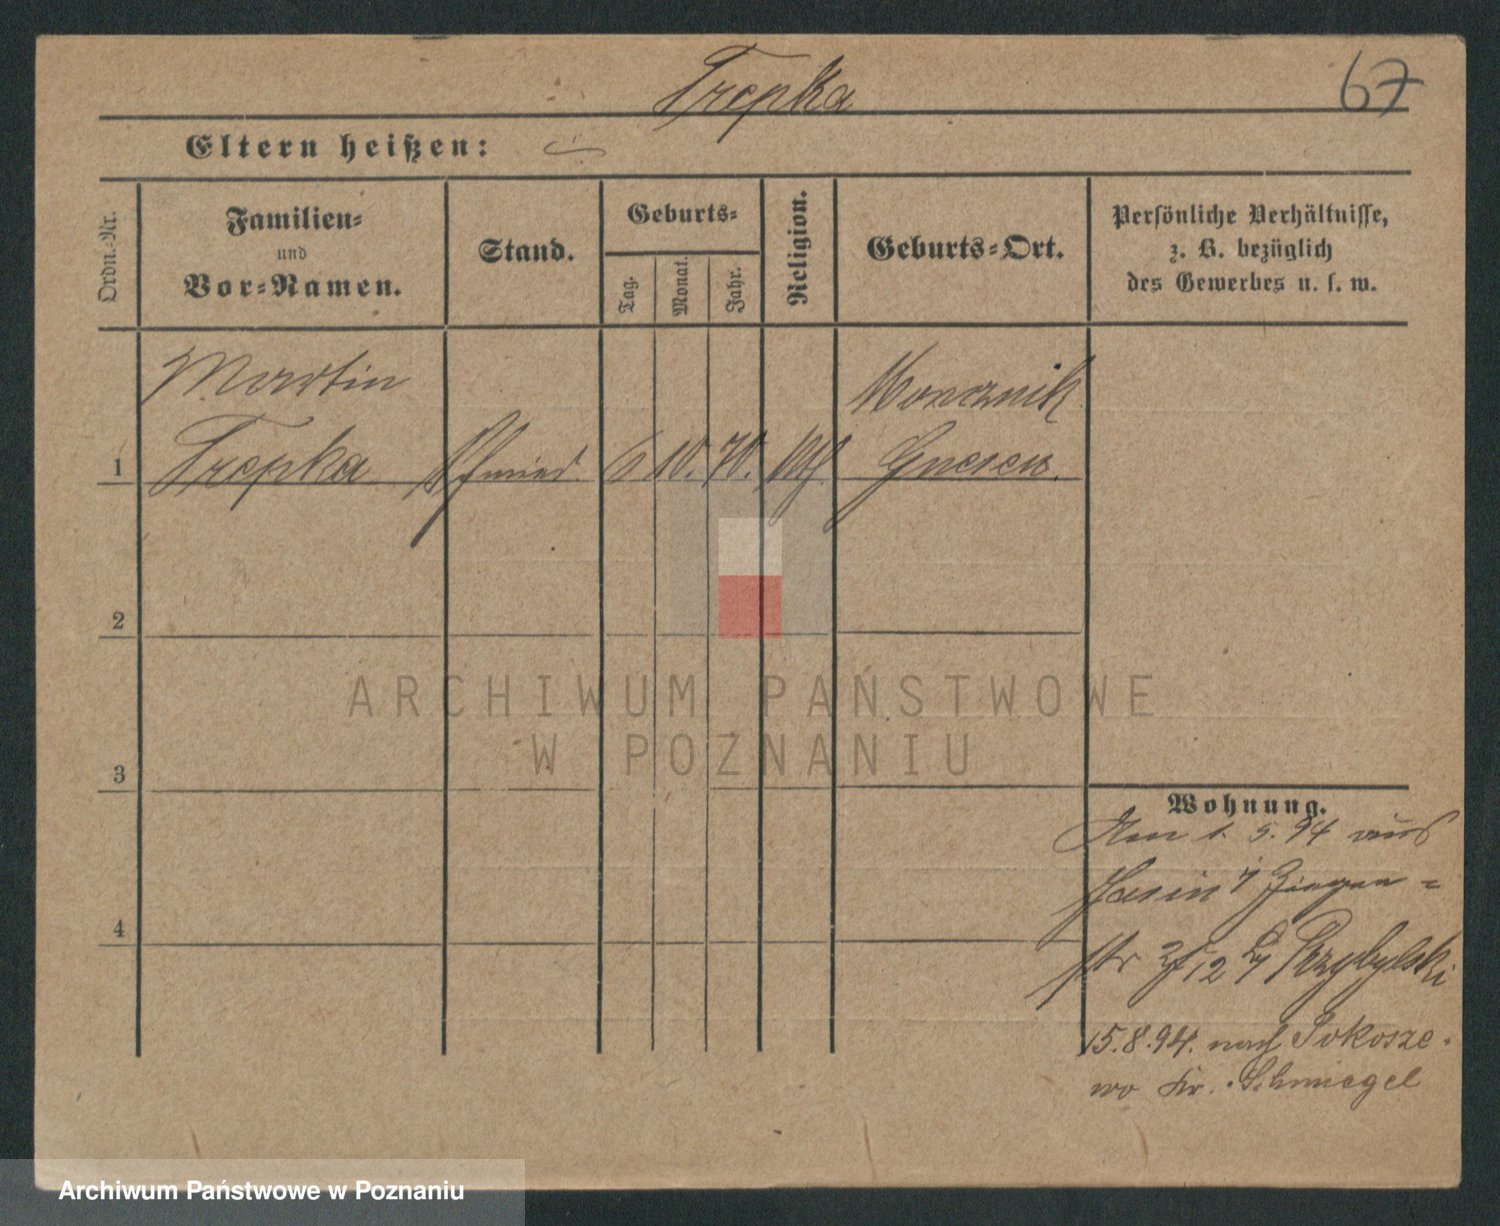 Trepka
67
Eltern heißen:
Ordn.-Nr.
Familien-
und
Vor-Namen.
Stand.
Geburts-
Tag.
Monat.
Jahr.
Religion.
Geburts-Ort.
Persönliche Verhältnisse,
z. B. bezüglich
des Gewerbes u. s. w.
Martin
1 Trepka Schmied 6 10. 70. kth
Gnesen.
2
3
4
ARCHIWUM PAŃSTWOWE
W POZNANIU
Wohnung.
Am 1. 5. 94 aus
Ziegen=
str 12 Przybylski
15.8.94. nach Sokosze-
wo Kr. Schmiegel
Archiwum Państwowe w Poznaniu